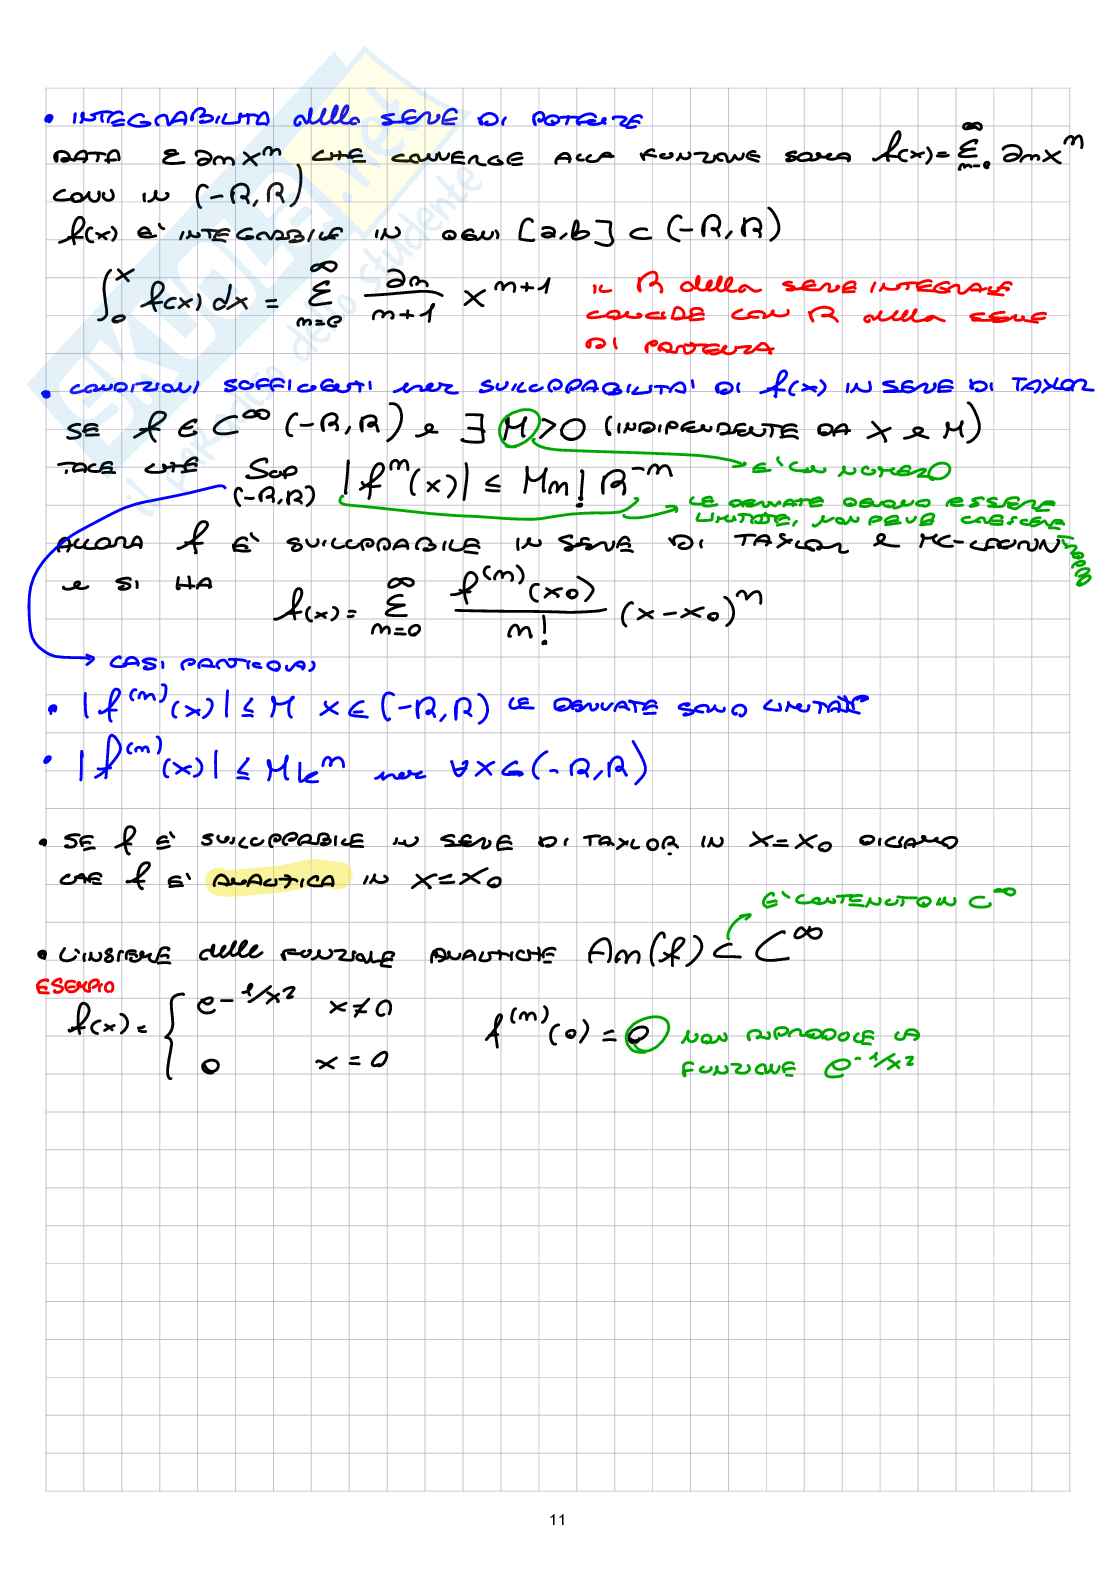 • INTEGRABILITA della SERIE DI POTENZE
DATA Σ anxⁿ CHE CONVERGE ALLA FUNZIONE SOMMA f(x)=Σ_{n=0}^{∞} anxⁿ
CONV IN (-R,R)
f(x) E' INTEGRABILE IN OGNI [a,b] ⊂ (-R,R)
∫₀ˣ f(x)dx = Σ_{n=0}^{∞} an/(n+1) x^{n+1} IL R della SERIE INTEGRALE
COINCIDE CON R della SERIE
DI POTENZA
• CONDIZIONI SUFFICIENTI per SVILUPPABILITA' DI f(x) IN SERIE DI TAYLOR
SE f ∈ C^∞ (-R,R) e ∃ M>0 (INDIPENDENTE DA X e M)
E' UN NUMERO
TALE CHE Sup_{(-R,R)} |fⁿ(x)| ≤ Mn! R⁻ⁿ
LE DERIVATE DEVONO ESSERE
LIMITATE, NON DEVE CRESCERE
TROPPO
ALLORA f E' SVILUPPABILE IN SERIE DI TAYLOR e MC-LAURIN
e SI HA
f(x) = Σ_{n=0}^{∞} f⁽ⁿ⁾(x₀)/n! (x-x₀)ⁿ
→ CASI PARTICOLARI
• |f⁽ⁿ⁾(x)| ≤ M x∈(-R,R) LE DERIVATE SONO LIMITATE
• |f⁽ⁿ⁾(x)| ≤ Mkⁿ per ∀x∈(-R,R)
• SE f E' SVILUPPABILE IN SERIE DI TAYLOR IN X=X₀ DICIAMO
CHE f E' ANALITICA IN X=X₀
E' CONTENUTO IN C^∞
• L'INSIEME delle FUNZIONI ANALITICHE An(f) ⊂ C^∞
ESEMPIO
f(x) = { e^{-1/x²} x≠0
0 x=0
f⁽ⁿ⁾(0) = 0 NON RIPRODUCE LA
FUNZIONE e^{-1/x²}
11
SKUOLA.net
il paradiso dello studente